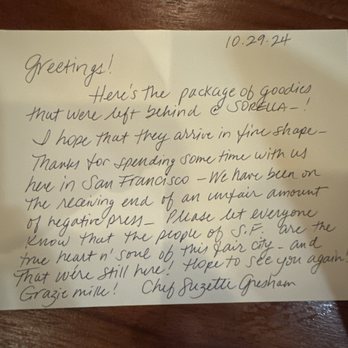 10.29.24
Greetings!
Here's the package of goodies
that were left behind @ SORELLA-!
I hope that they arrive in fine shape-
Thanks for spending some time with us
here in San Francisco - We have been on
the receiving end of an unfair amount
of negative press- Please let everyone
know that the people of S.F. are the
true heart n' soul of this fair city - and
That we're still here! Hope to see you again!
Grazie mille! Chef Suzette Gresham